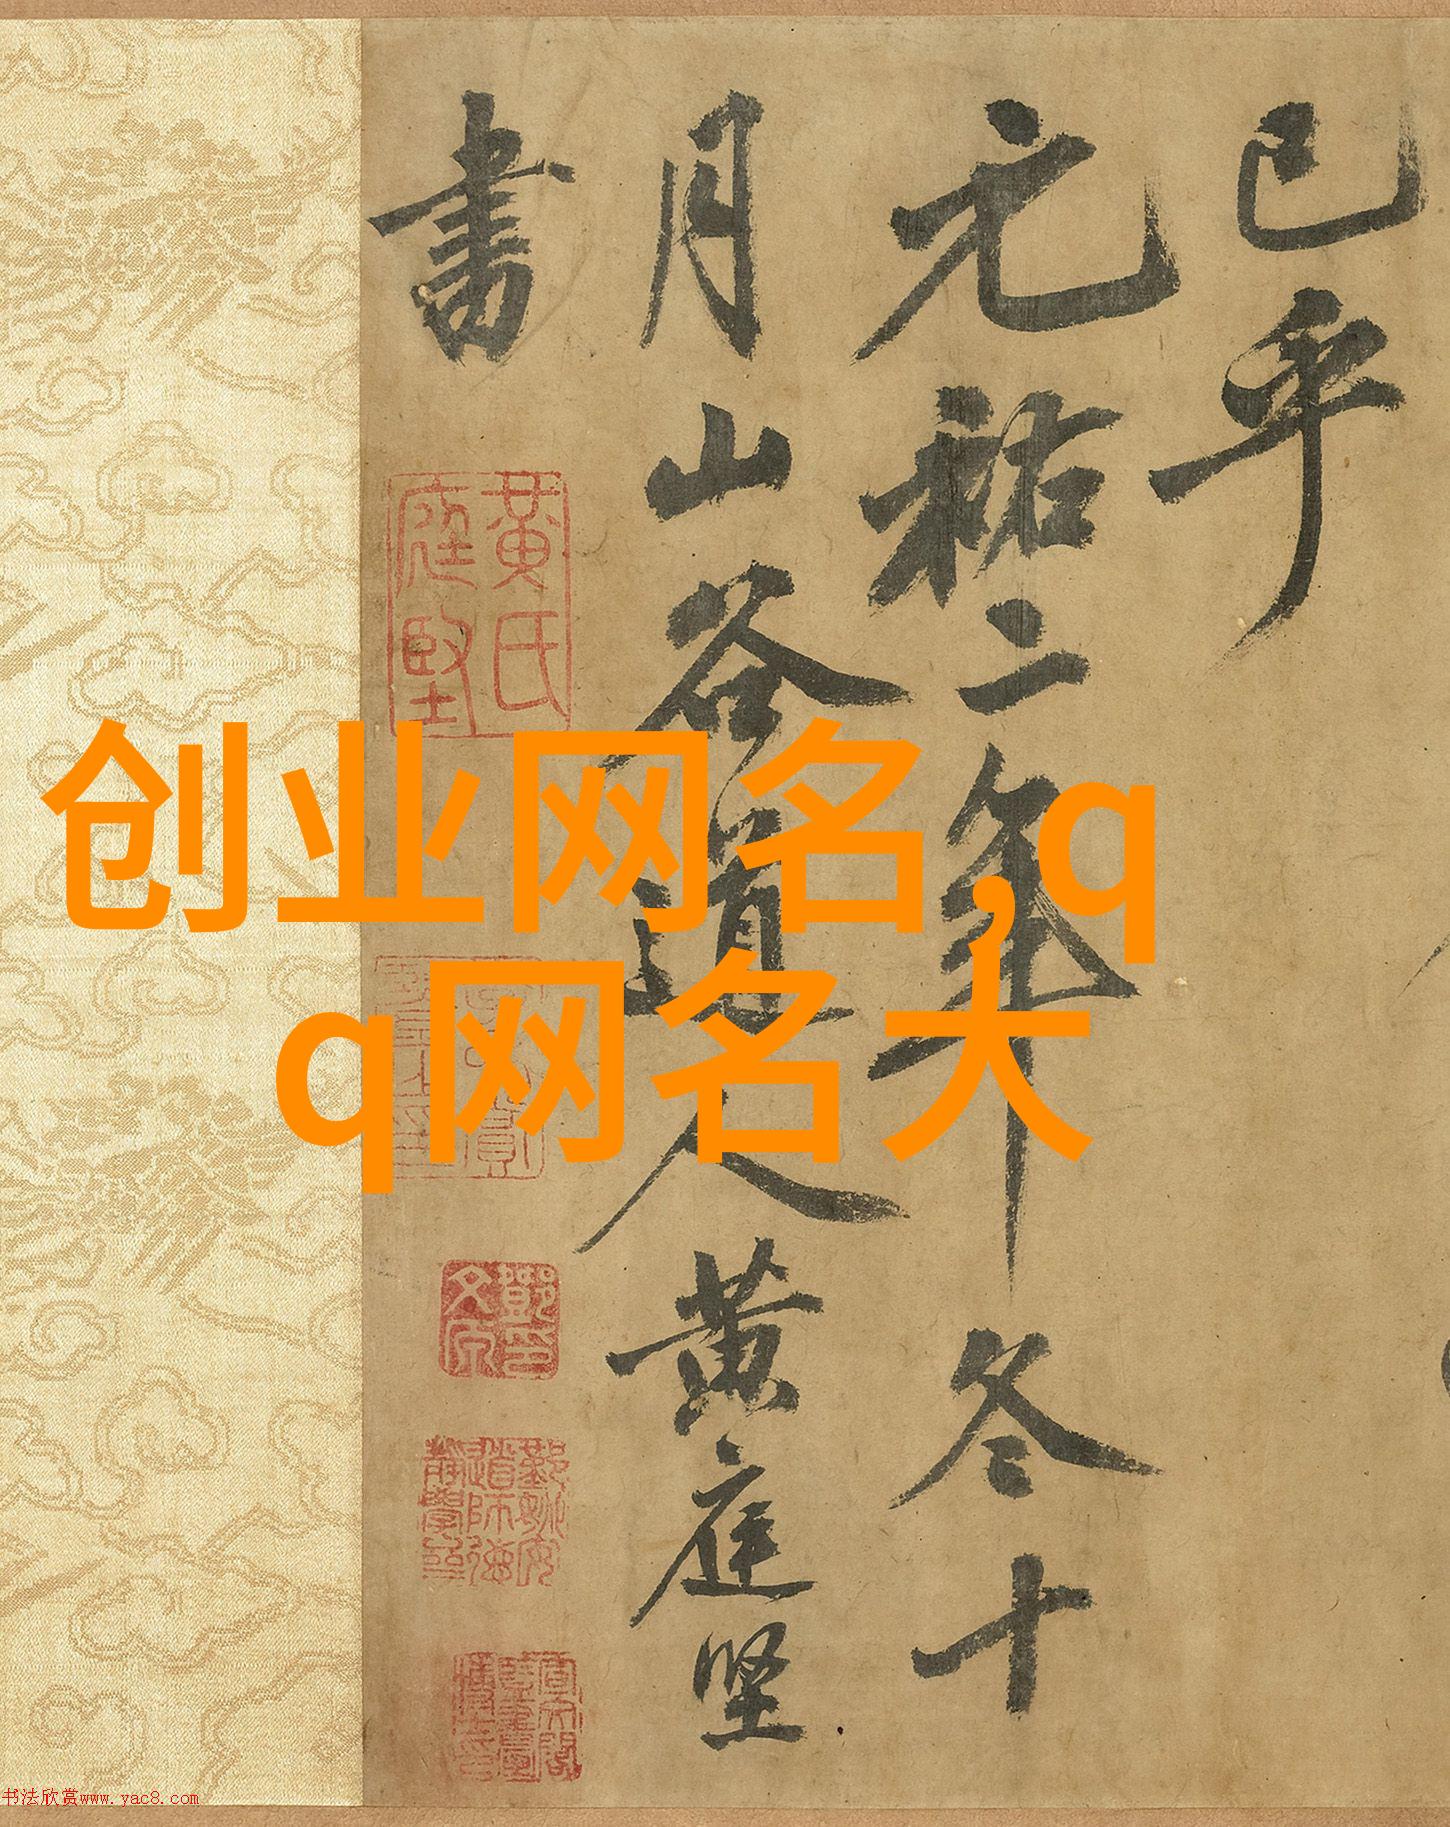 已乎
元祐二年冬十
月山谷道人黄庭坚
書
黄氏庭堅
创业网名,q
q网名大
书法欣赏www.yac8.com